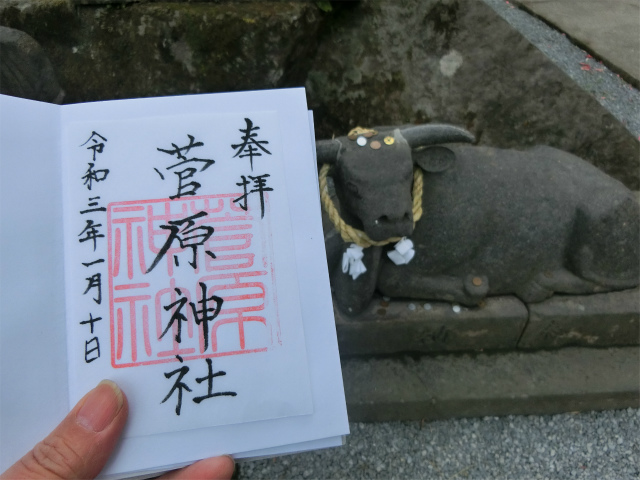 奉拝
菅原神社
令和三年一月十日
菅原
神社